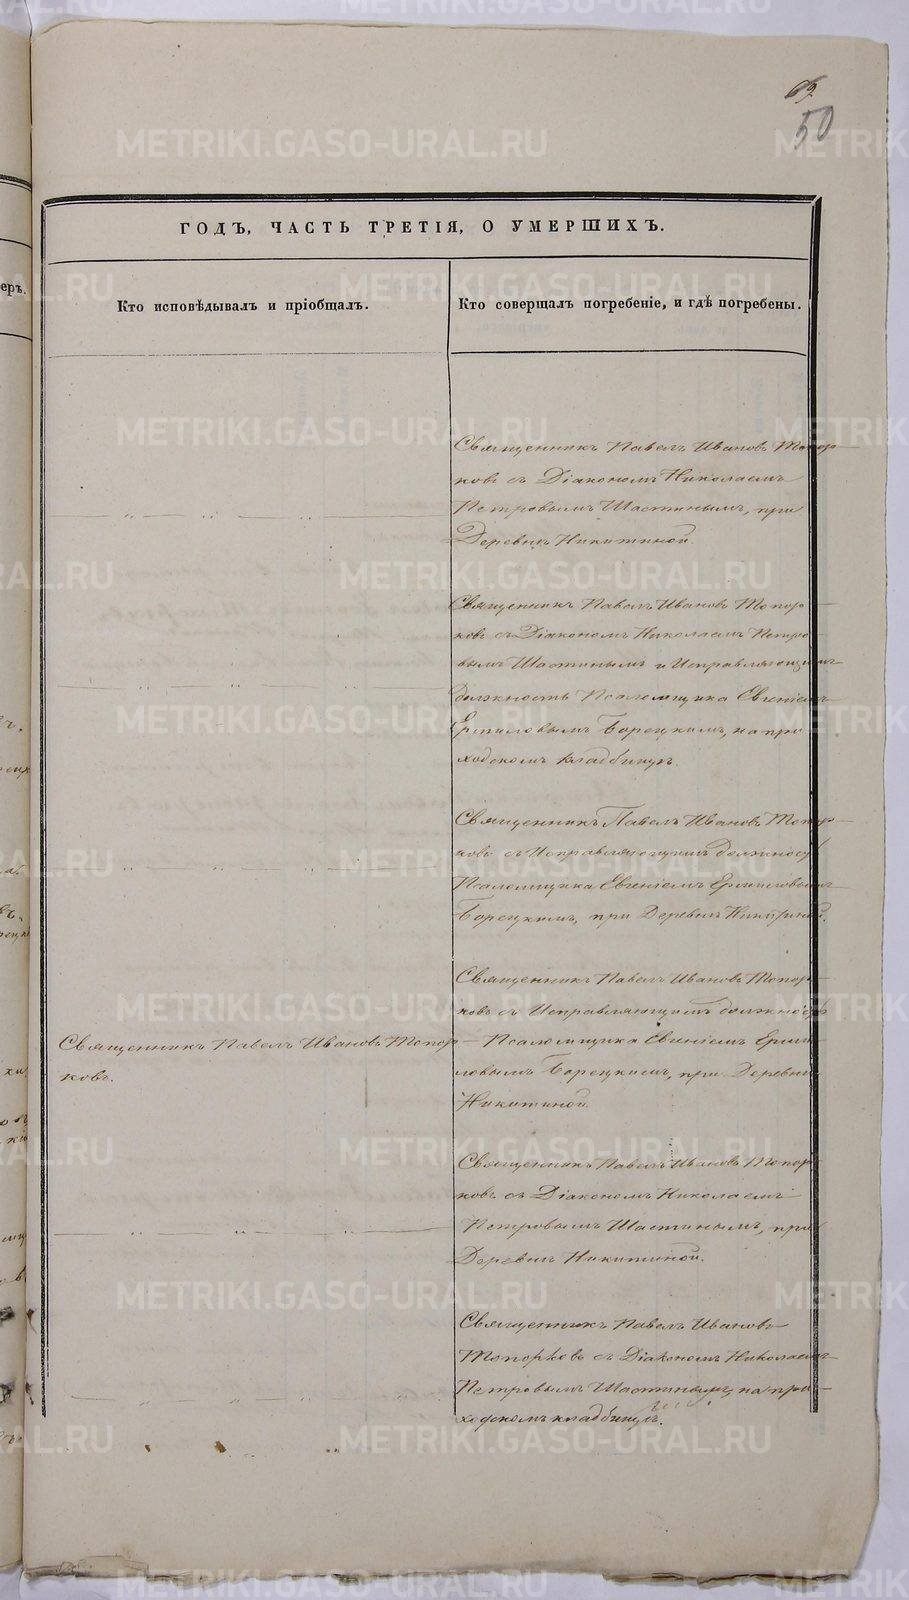 69.
50
ГОДЪ, ЧАСТЬ ТРЕТІЯ, О УМЕРШИХЪ.
еръ.
Кто исповѣдывалъ и пріобщалъ.
Кто совершалъ погребеніе, и гдѣ погребены.
Священникъ Павелъ Ивановъ Топор-
ковъ съ Діакономъ Николаемъ
Петровымъ Шастинымъ, при
Деревнѣ Никитиной.
Священникъ Павелъ Ивановъ Топор-
ковъ съ Діакономъ Николаемъ Петро-
вымъ Шастинымъ и Исправляющимъ
должность Псаломщика Евгеніемъ
Ермиловымъ Борецкимъ, на при-
ходскомъ кладбищѣ.
Священникъ Павелъ Ивановъ Топор-
ковъ съ Исправляющимъ должность
Псаломщика Евгеніемъ Ермиловымъ
Борецкимъ, при Деревнѣ Никитиной.
Священникъ Павелъ Ивановъ Топор-
ковъ.
Священникъ Павелъ Ивановъ Топор-
ковъ съ Исправляющимъ должность
Псаломщика Евгеніемъ Ерми-
ловымъ Борецкимъ, при Деревнѣ
Никитиной.
Священникъ Павелъ Ивановъ Топор-
ковъ съ Діакономъ Николаемъ
Петровымъ Шастинымъ, при
Деревнѣ Никитиной.
Священникъ Павелъ Ивановъ
Топорковъ съ Діакономъ Николаемъ
Петровымъ Шастинымъ, на при-
ходскомъ кладбищѣ.
METRIKI.GASO-URAL.RU